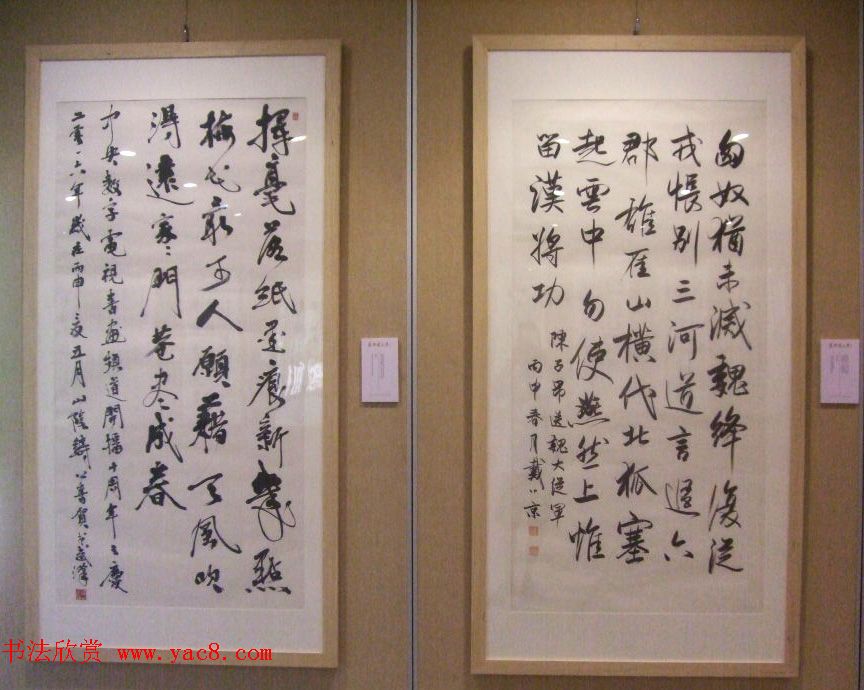 揮毫落紙墨痕新幾點
梅花最可人願藉天風吹
得遠家〻門巷尽成春
中央數字電視書畫頻道開播十周年之慶
二零一六年歲在丙申之夏五月山陰
匈奴猶未滅魏絳復從
戎悵別三河道言追六
郡雄雁山橫代北狐塞
起雲中勿使燕然上惟
留漢將功
陳子昂送魏大從軍
丙申春月戴小京
书法欣赏 www.yac8.com